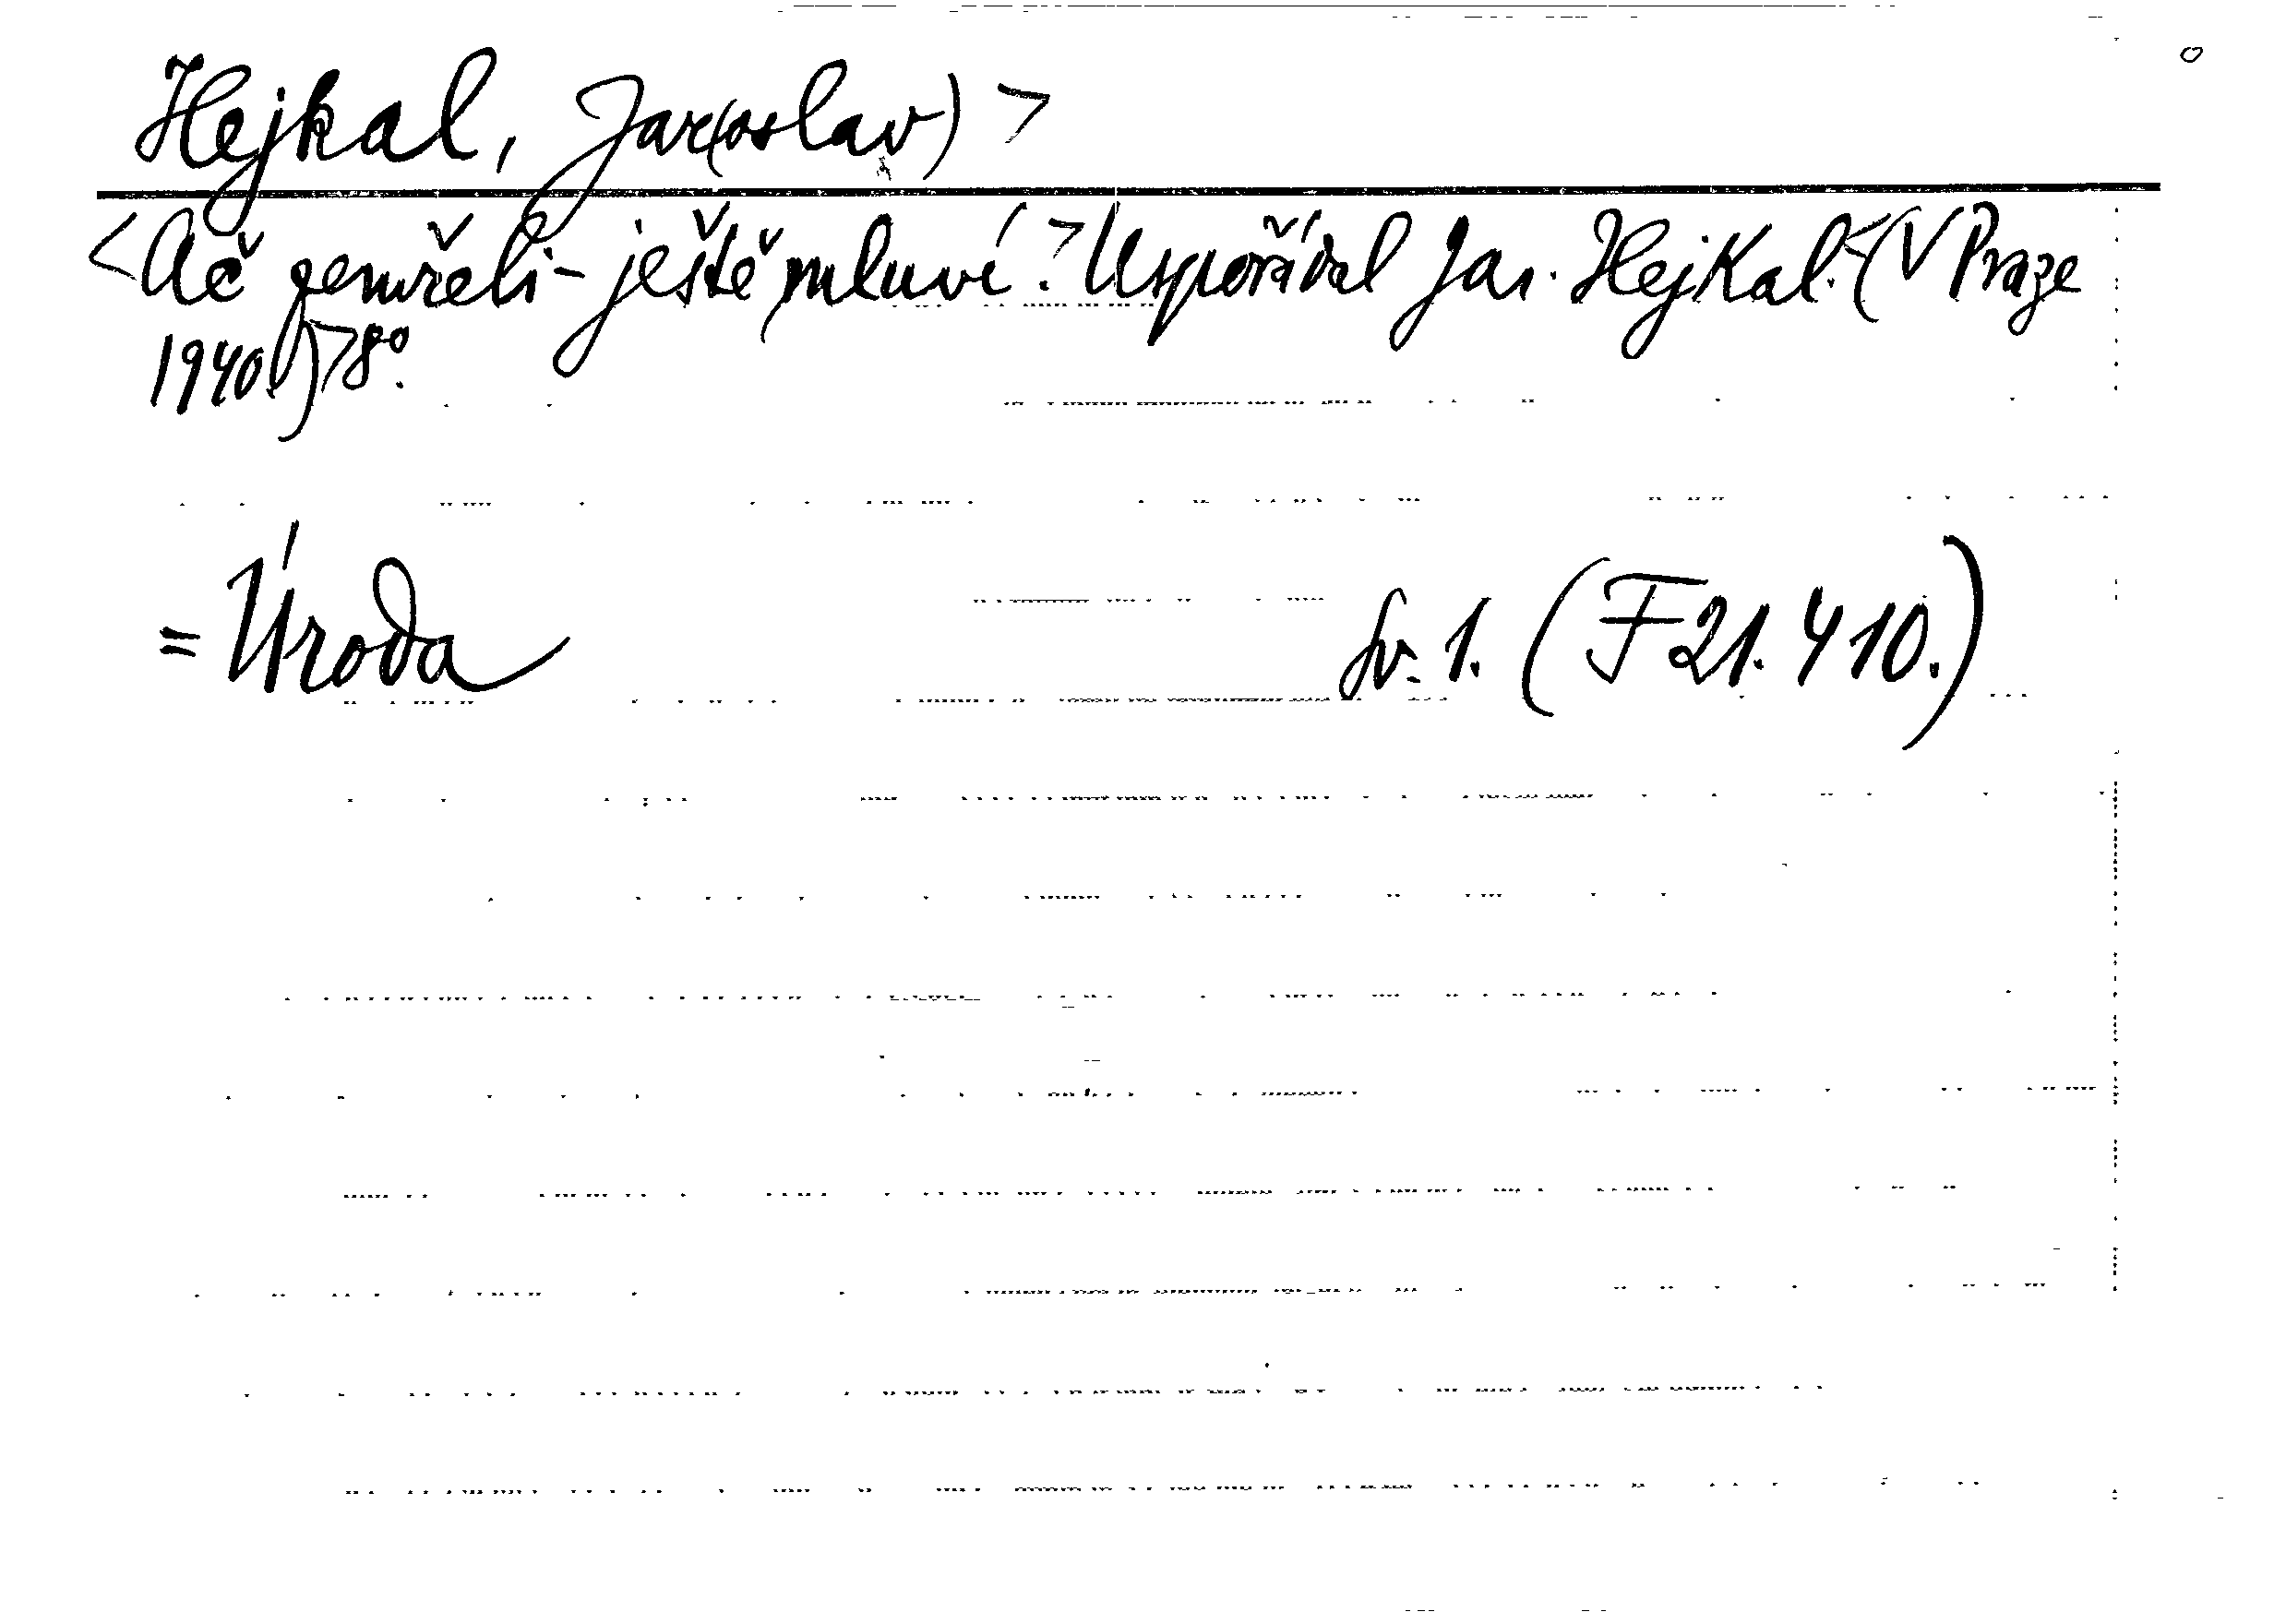 Hejkal, Jar(oslav) >
<Ač zemřeli - ještě mluví.> Uspořádal Jar. Hejkal. <(V Praze
1940.)> 8°.
= Úroda sv. 1. (F 21. 410.)